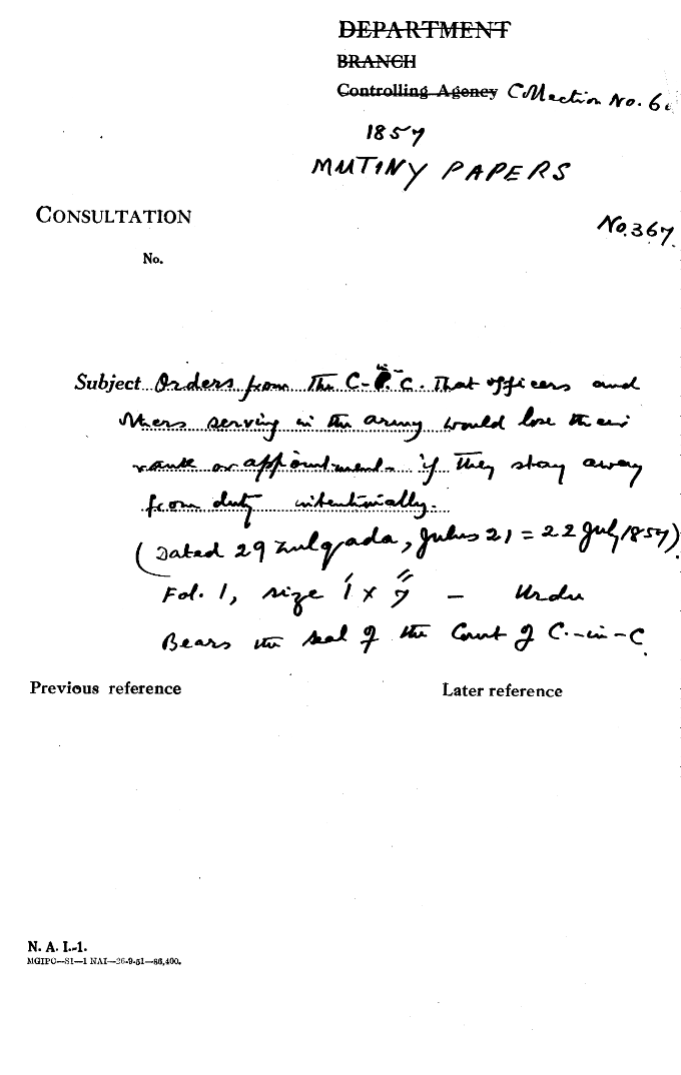 DEPARTMENT
BRANCH
Controlling Agency Collection No. 6
1857
MUTINY PAPERS
CONSULTATION
No. 367.
No.
Subject Orders from the C-in-C. That officers and
others serving in the army would lose their
rank or appointment if they stay away
from duty intentionally.
(Dated 29 Zulqada, Julus 21 = 22 July 1857)
Fol. 1, size 1' x 7" — Urdu
Bears the seal of the Court of C.-in-C.
Previous reference
Later reference
N. A. I.-1.
MGIPC—S1—1 NAI—26-9-51—86,400.